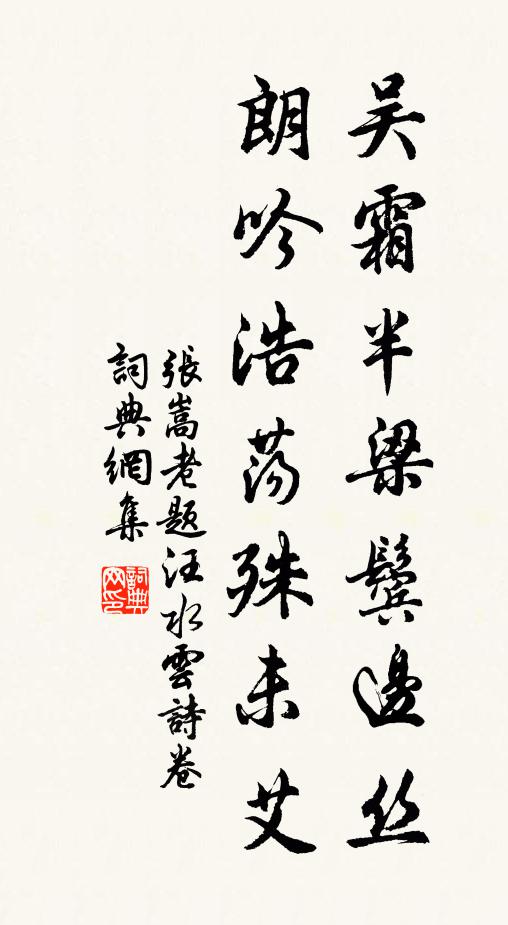 吴霜半梁鬓邊丝
朗吟浩荡殊未艾
張嵩老题汪水雲詩卷
詞典網集
詞典网印